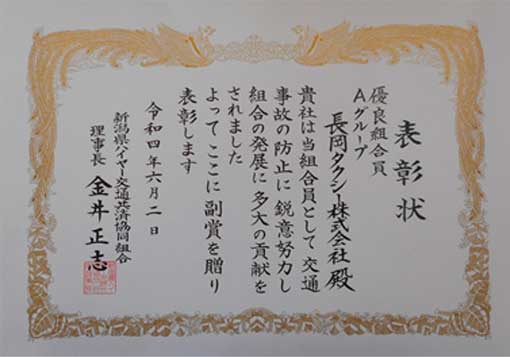 表彰状
優良組合員
Aグループ
長岡タクシー株式会社 殿
貴社は当組合員として 交通
事故の防止に 鋭意努力し
組合の発展に 多大の貢献を
されました
よって ここに 副賞を贈り
表彰します
令和四年六月二日
新潟県ハイヤー交通共済協同組合
理事長 金井正志